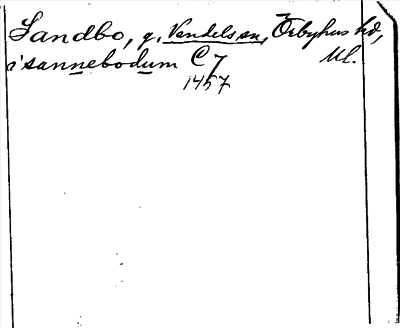 Sandbo, g. Vendels sn, Örbyhus hd,
i sannebodum C 7 Ul.
1457